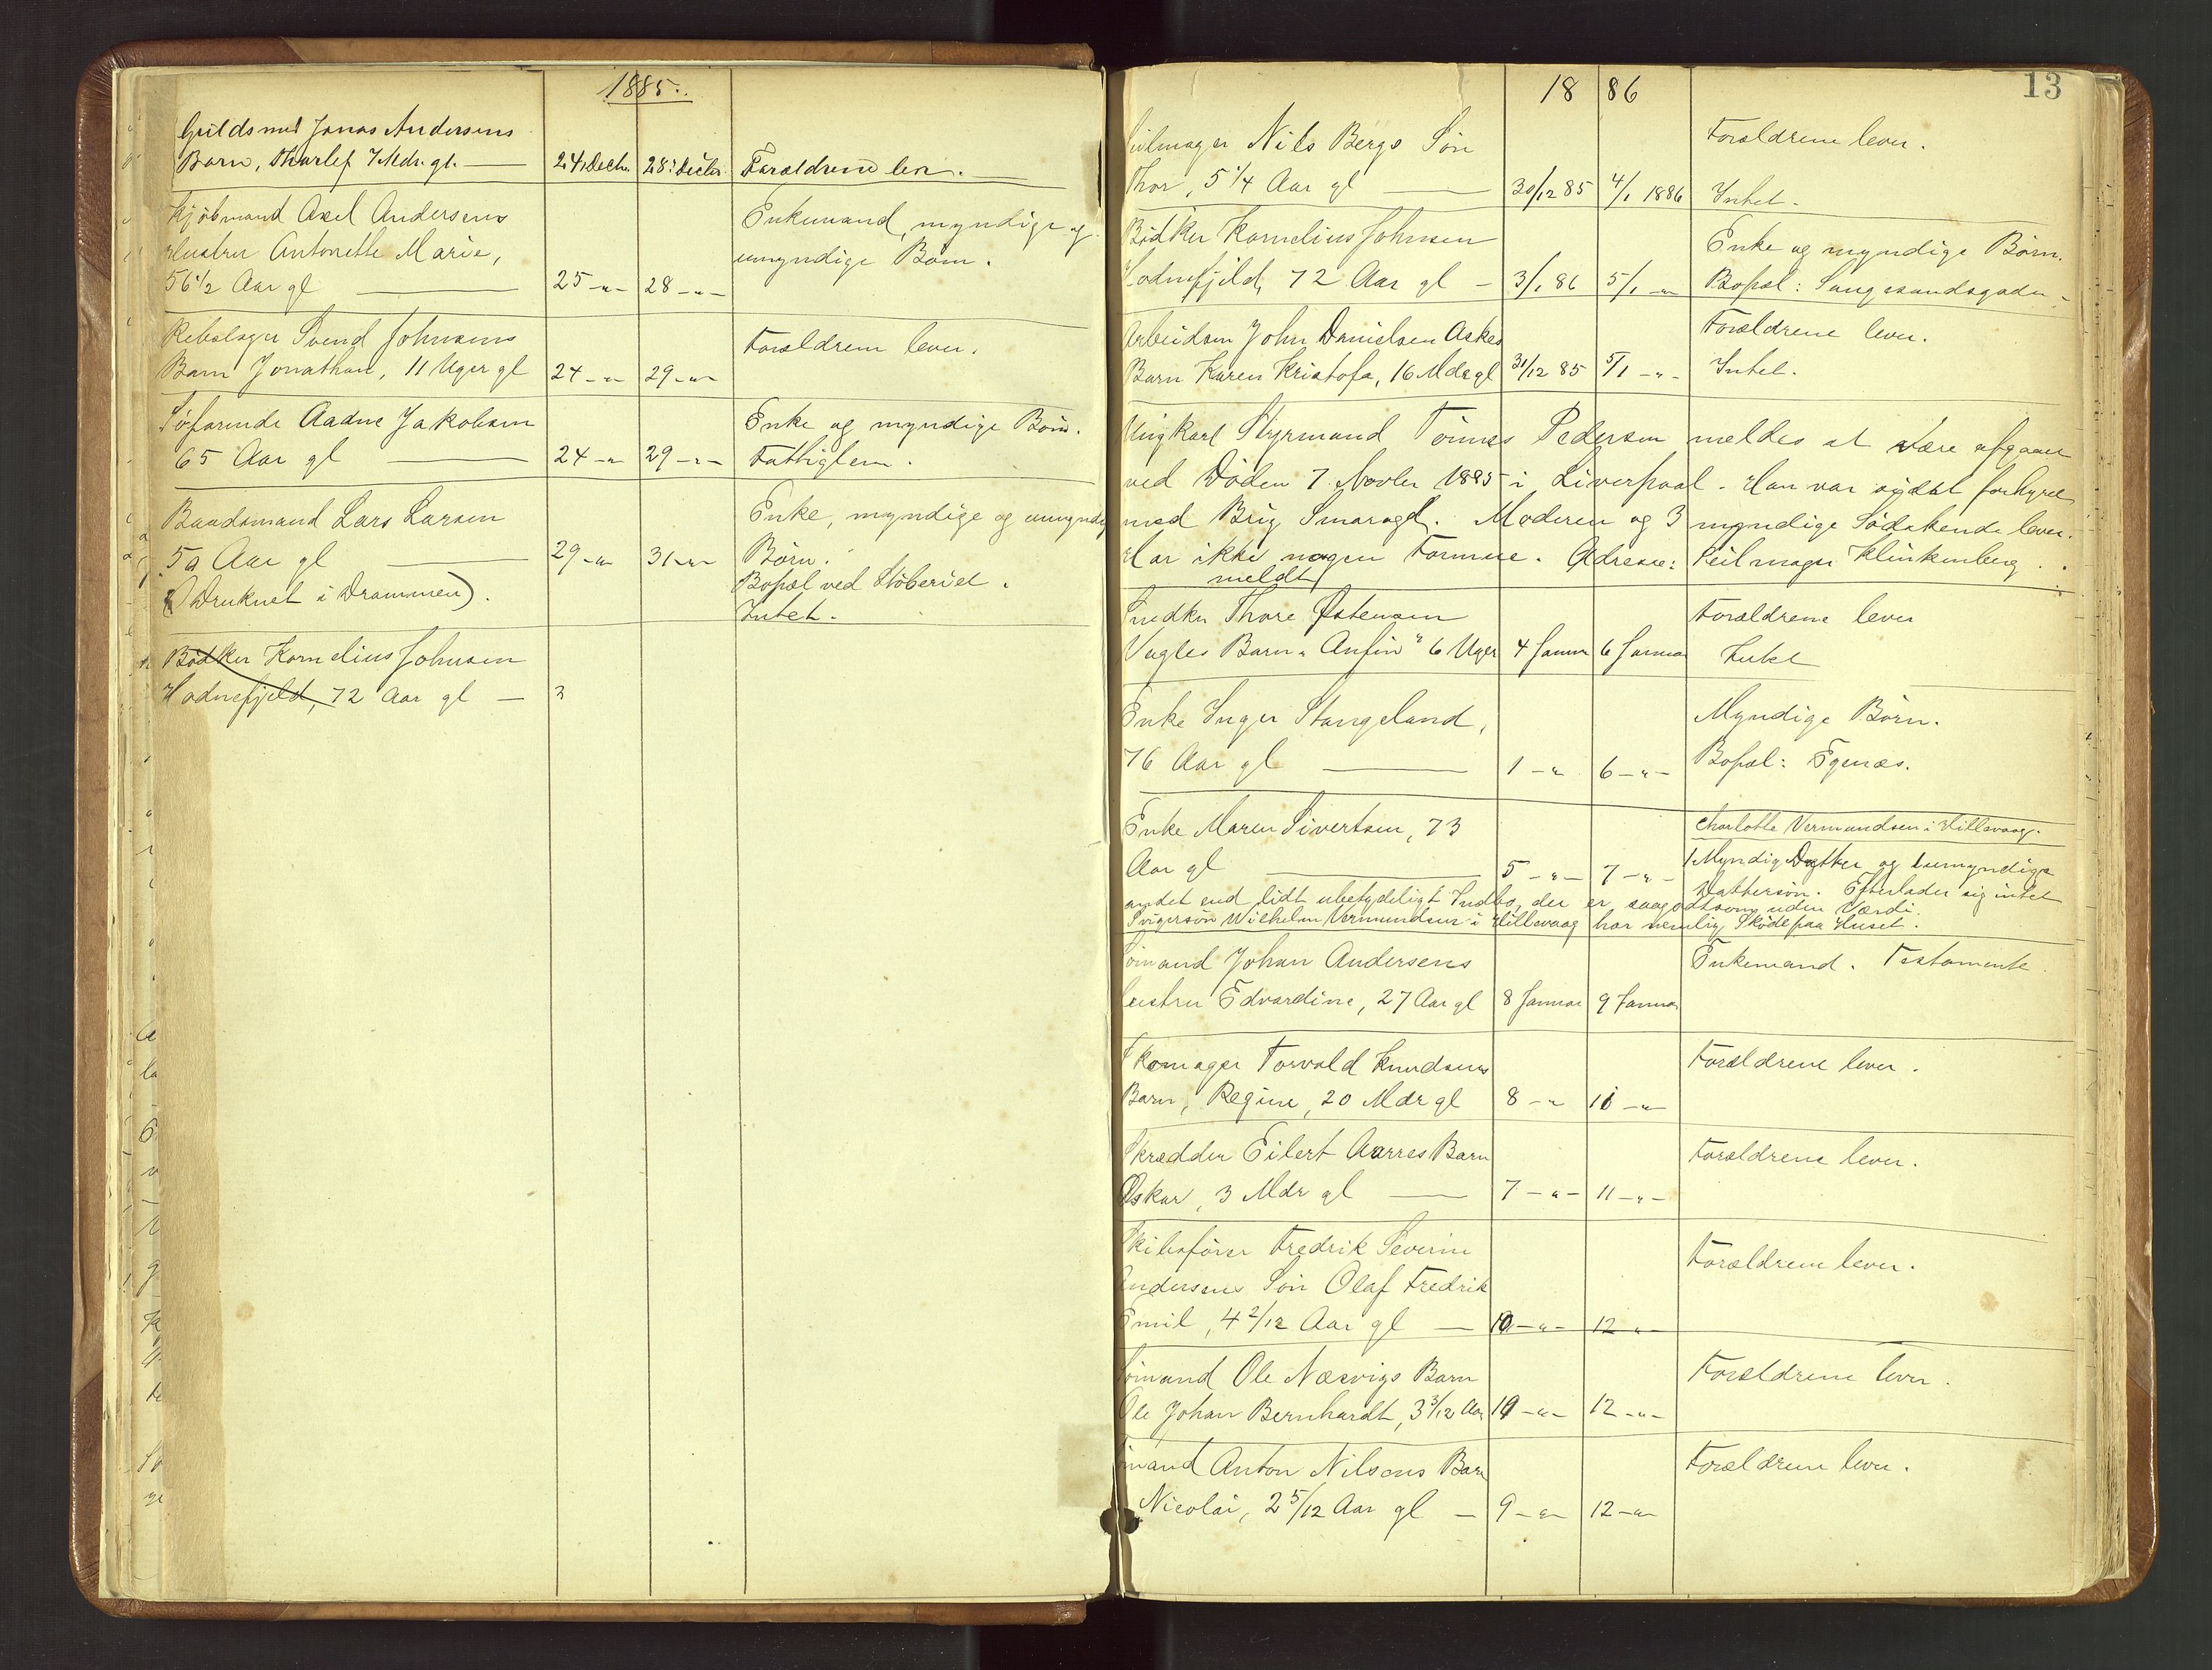 1885.
Guldsmed Jonas Andersens
Barn, Tharlef 7 Mdr. gl. — 24. Decbr. 28. Decbr. Forældrene lever. —
Kjøbmand Axel Andersens
Hustru Antonette Marie,
56 1/2 Aar gl — 25 -"- 28 -"-
Enkemand, myndige og
umyndige Børn.
Rebslager Svend Johnsens
Barn Jonathan, 11 Uger gl 24 -"- 29 -"-
Forældrene lever.
Søfarende Aadne Jakobsen
65 Aar gl — 24 -"- 29 -"-
Enke og myndige Børn.
Fattiglem.
Baadsmand Lars Larsen
50 Aar gl — 29 -"- 31 -"-
(Druknet i Drammen).
Enke, myndige og umyndige
Børn.
Bopæl ved Støberiet.
Intet.
Bødker Kornelius Johnsen
Hodnefjeld, 72 Aar gl — 3
13
18 86
Seilmager Nils Bergs Søn
Thor, 5 1/4 Aar gl — 30/12 85 4/1 1886
Forældrene lever.
Intet.
Bødker Kornelius Johnsen
Hodnefjeld, 72 Aar gl — 3/1 86 5/1 -"-
Enke og myndige Børn.
Bopæl: Langesandsgaden
Arbeidsm John Danielsen Askes
Barn Karen Kristofa, 16 Mdr gl 31/12 85 5/1 -"-
Forældrene lever.
Intet.
Ungkarl Styrmand Tönnes Pedersen meldes at være afgaaet
ved Döden 7 Novbr 1885 i Liverpool. Han var sidst forhyret
med Brig Smaragd. Moderen og 3 myndige Södskende lever.
Har ikke nogen Formue. Adresse: Seilmager Klinkenberg.
meldt
Snedker Thore Østensen
Vagles Barn "Anfin" 6 Uger 4 Januar 6 Januar
Forældrene lever
Intet
Enke Inger Stangeland,
76 Aar gl — 1 -"- 6 -"-
Myndige Börn.
Bopæl: Egenæs.
Enke Maren Sivertsen, 73
Aar gl — 5 -"- 7 -"-
Charlotte Vermundsen i Hillevaag.
1 Myndig Datter og 1 umyndig
Dattersön. Efterlader sig intet
andet end lidt ubetydeligt Indbo, der er saagodtsom uden Værdi.
Svigersön Wilhelm Vermundsen i Hillevaag har nemlig Sköde paa Huset.
Sömand Johan Andersens
Hustru Edvardine, 27 Aar gl 8 Januar 9 Januar
Enkemand. Testamente
Skomager Torvald Knudsens
Barn, Regine, 20 Mdr gl 8 -"- 11 -"-
Forældrene lever.
Skrædder Eilert Aarres Barn
Oskar, 3 Mdr gl — 7 -"- 11 -"-
Forældrene lever.
Skibsförer Fredrik Severin
Andersens Sön Olaf Fredrik
Emil, 4 2/12 Aar gl — 10 -"- 12 -"-
Forældrene lever.
Sömand Ole Næsvigs Barn
Ole Johan Bernhardt, 3 3/12 Aar 10 -"- 12 -"-
Forældrene lever.
Sömand Anton Nilsens Barn
Nicolai, 2 5/12 Aar gl — 9 -"- 12 -"-
Forældrene lever.